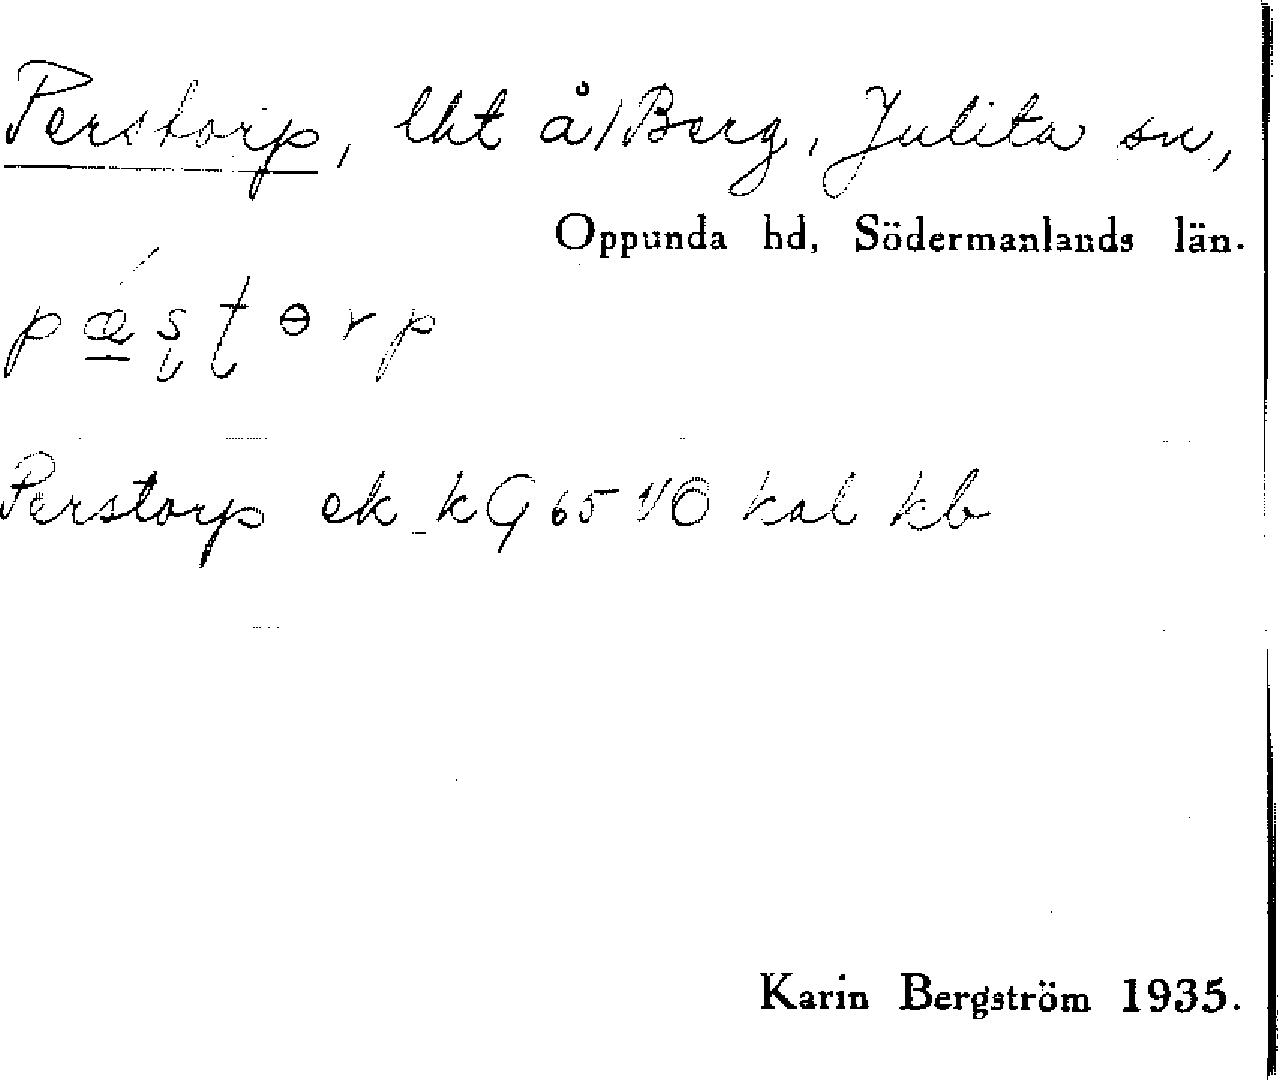 Perstorp, lht å/Berg, Julita sn,
Oppunda hd, Södermanlands län.
pǽ̲ʂʈɵrp
Perstorp ek kG 65 1/Ö kal kb
Karin Bergström 1935.